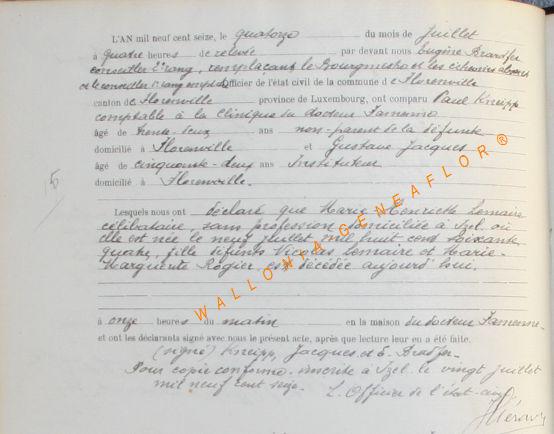 L'AN mil neuf cent seize, le quatorze du mois de Juillet
à quatre heures de relevée par devant nous Eugène Bradfer
conseiller 2e rang, remplaçant le Bourgmestre et les échevins absents
et le conseiller 1er rang empêché Officier de l'état civil de la commune de Florenville
canton de Florenville province de Luxembourg, ont comparu Paul Kneipp
comptable à la Clinique du docteur Famenne
âgé de trente-deux ans non-parent de la défunte
domicilié à Florenville et Gustave Jacques
âgé de cinquante-deux ans Instituteur
domicilié à Florenville.
15
Lesquels nous ont déclaré que Marie Henriette Lemaire
célibataire, sans profession domiciliée à Izel, où
elle est née le neuf Juillet mil huit cent soixante
quatre, fille defunts Nicolas Lemaire et Marie-
Marguerite Rogier est décédée aujourd'hui.
à onze heures du matin en la maison du docteur Famenne.
et ont les déclarants signé avec nous le présent acte, après que lecture leur en a été faite.
(signé) Kneipp, Jacques et E. Bradfer.
Pour copie conforme inscrite à Izel le vingt juillet
mil neuf cent seize. L'Officier de l'état-civil
WALLONIA GENEAFLOR ®